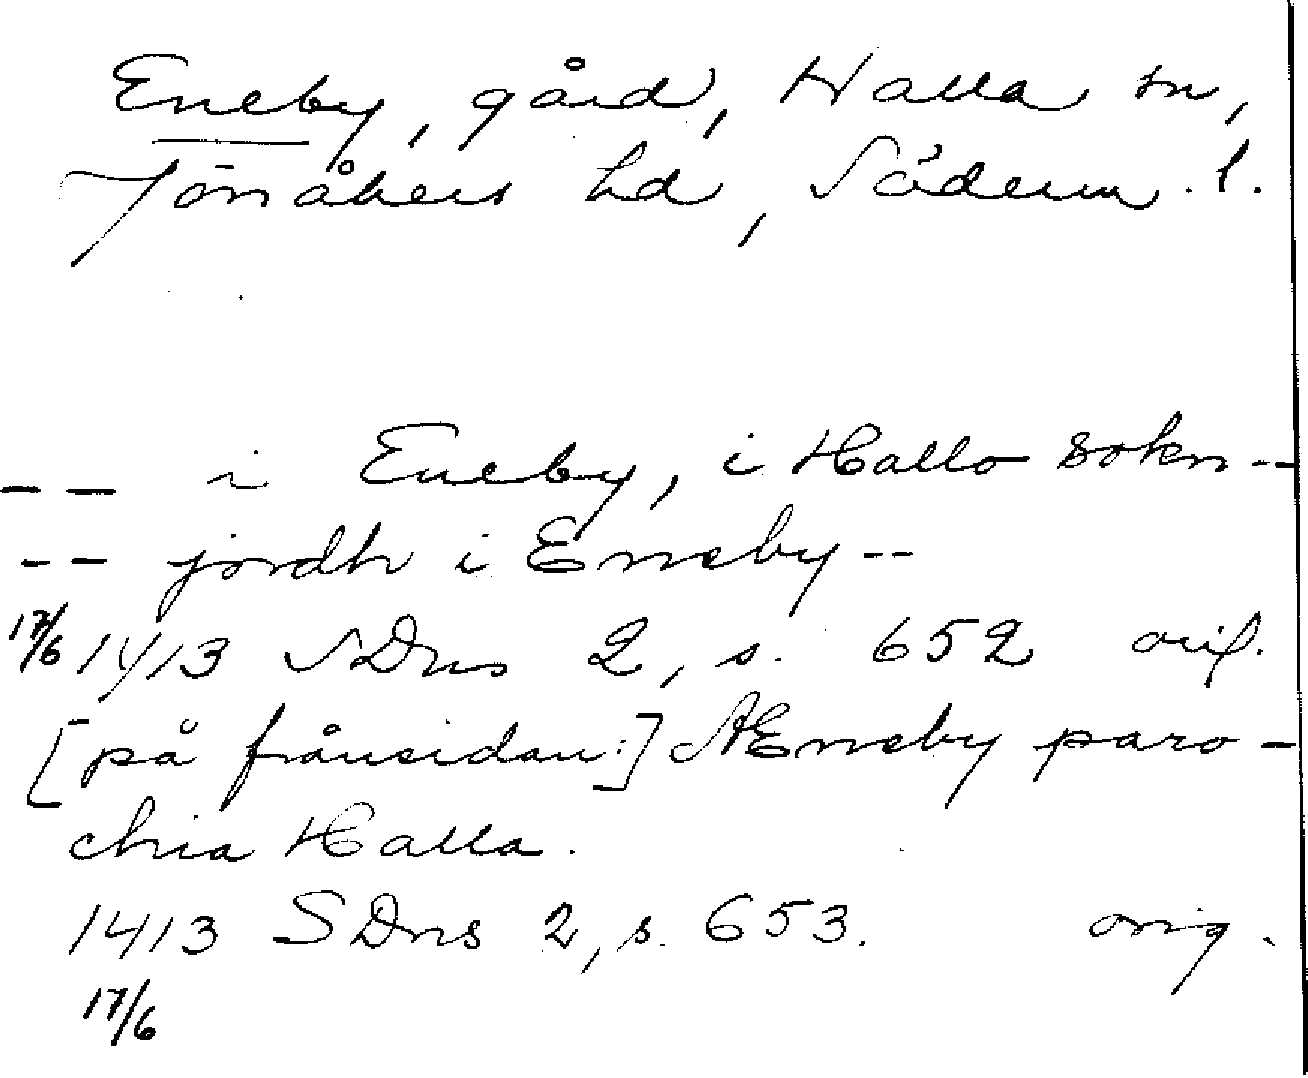 Eneby, gård, Halla sn,
Jönåkers hd, Söderm. l.
-- i Eneby, i Hallo sokn--
-- jordh i Eneby--
17/6 1413 SDns 2, s. 652 orig.
[på frånsidan:] Æneby paro-
chia Halla.
1413 SDns 2, s. 653. orig.
17/6